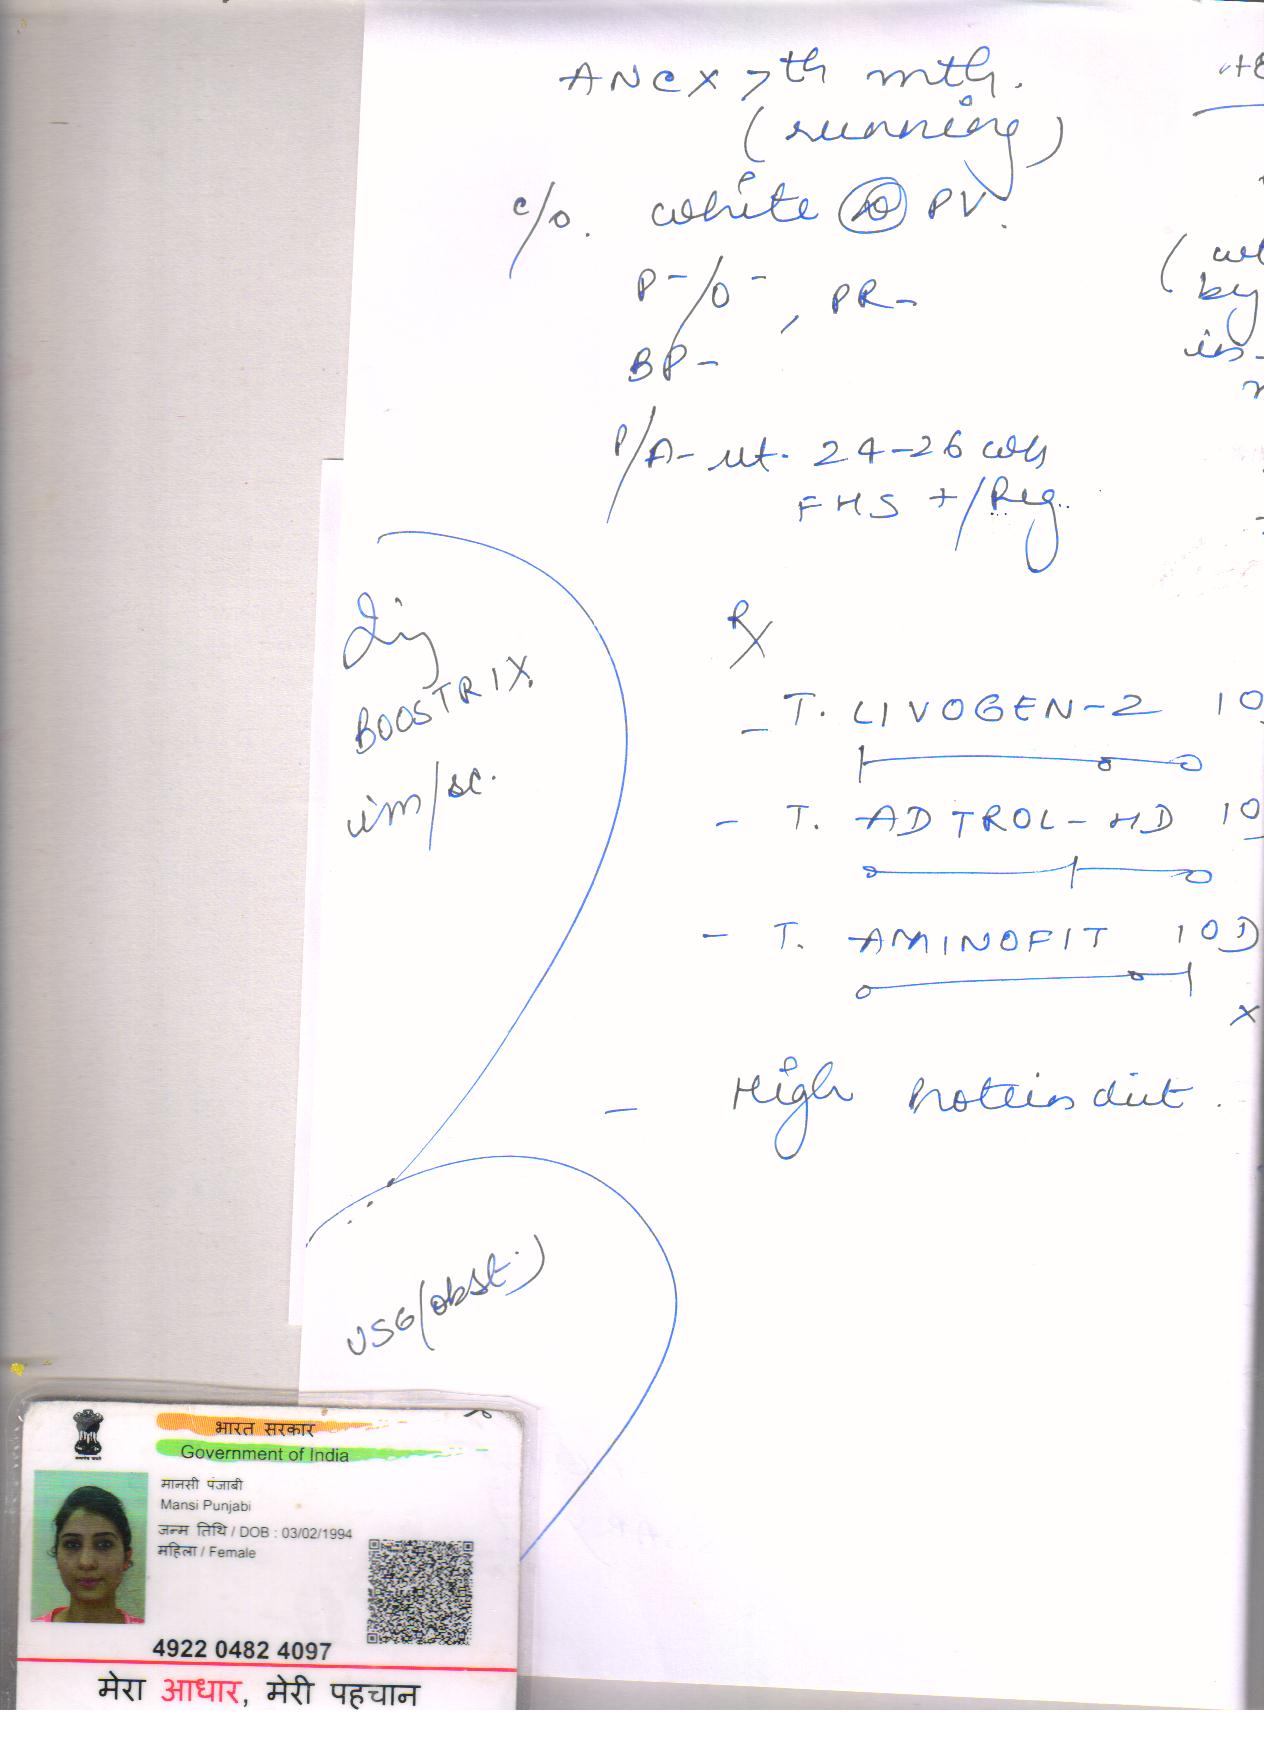 ANC x 7th mth.
(running)
c/o. white PV.
P-/O-, PR-
BP-
P/A- ut. 24-26 wks
FHS +/Reg.
Inj
BOOSTRIX
im/sc.
Rx
- T. LIVOGEN-Z 10
- T. ADTROL-HD 10
- T. AMINOFIT 10D
x
- High Protein diet.
USG (obst.)
by
in
भारत सरकार
Government of India
मानसी पंजाबी
Mansi Punjabi
जन्म तिथि / DOB : 03/02/1994
महिला / Female
4922 0482 4097
मेरा आधार, मेरी पहचान